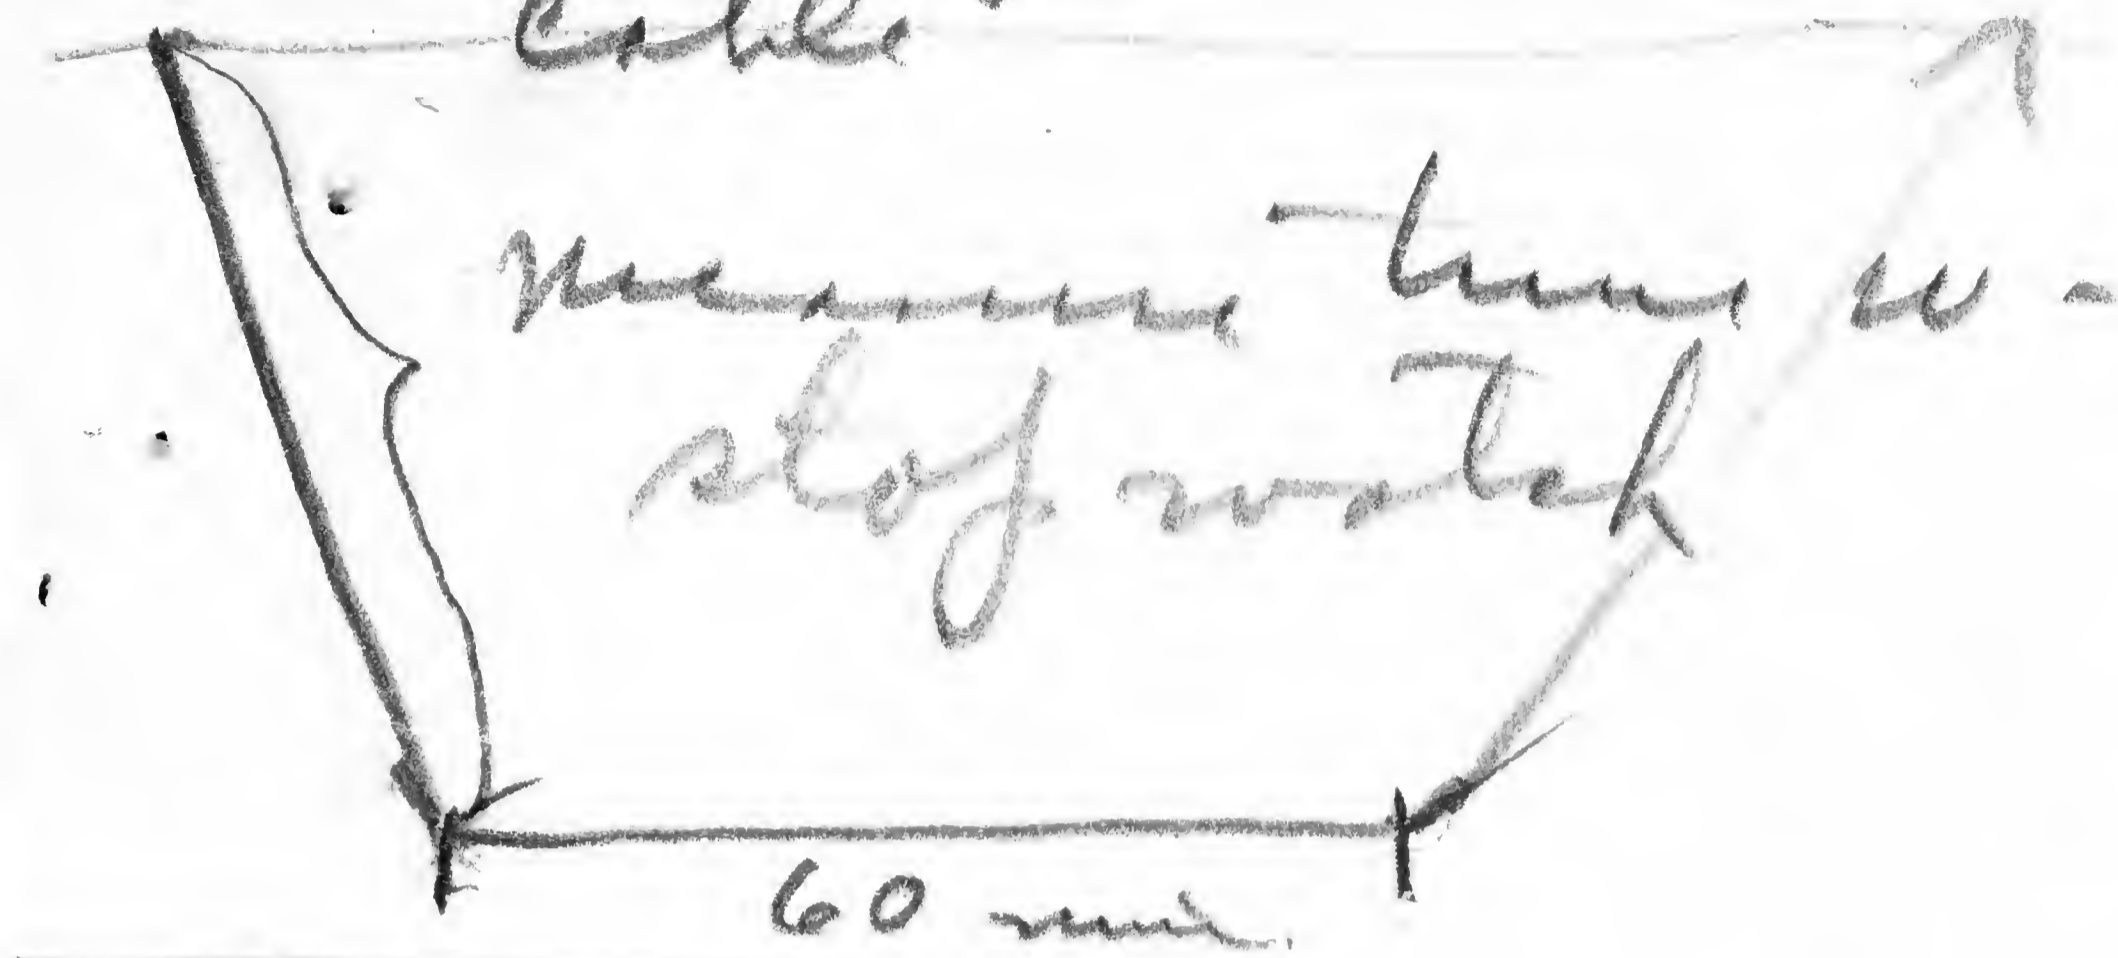 table
measure time w-
stop watch
60 min.